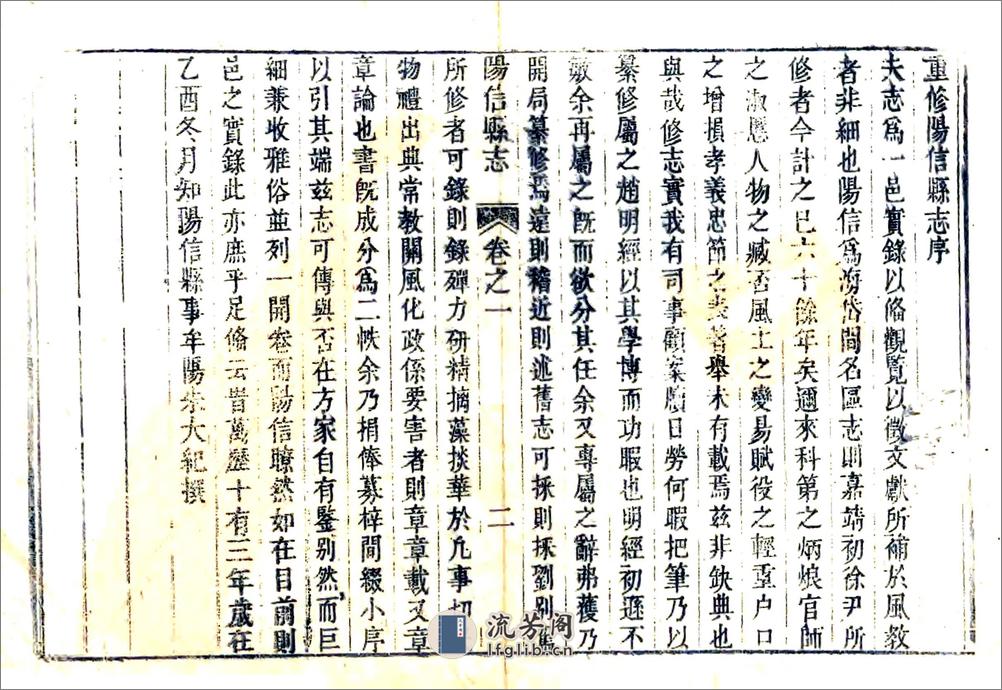 重修陽信縣志序
夫志爲一邑實錄以俻觀覧以徵文獻所補於風教
者非細也陽信爲海岱間名區志則嘉靖初徐尹所
修者今計之已六十餘年矣邇來科第之炳烺官師
之淑慝人物之臧否風土之變易賦役之輕重户口
之增損孝義忠節之表著舉未有載焉兹非欽典也
與哉修志實我有司事顧案牘日勞何暇把筆乃以
纂修屬之趙明經以其學博而功暇也明經初遜不
敏余再屬之旣而欲分其任余又專屬之辭弗獲乃
開局纂修焉遠則稽近則述舊志可採則採劉别
陽信縣志
卷之一
二
所修者可錄則錄殫力研精摛藻掞華於凡事切
物禮出典常教關風化政係要害者則章章載又章
章論也書旣成分爲二帙余乃捐俸募梓間綴小序
以引其端兹志可傳與否在方家自有鑒别然而巨
細兼收雅俗並列一開卷而陽信瞭然如在目前則
邑之實錄此亦庶乎足俻云昔萬歷十有三年歲在
乙酉冬月知陽信縣事牟陽朱大紀撰
流芳阁
lfglib.cn